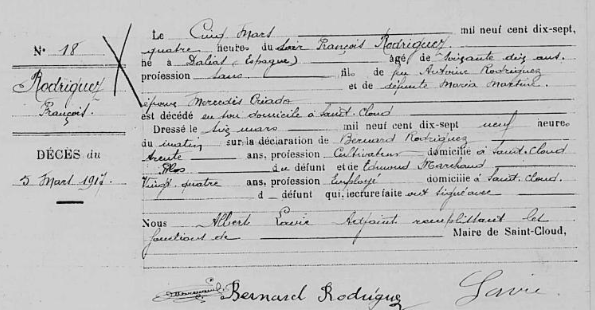 N° 18
Rodriguez
François.
DÉCÈS du
5 Mars 1917
Le Cinq Mars mil neuf cent dix-sept,
quatre heure du soir François Rodriguez
né à Dalias (Espagne) âgé de soixante dix ans.
profession sans fils de feu Antoine Rodriguez
et de défunte Maria Martin
épouse Mercédès Criado
est décédé en son domicile à Saint-Cloud
Dressé le six mars mil neuf cent dix-sept neuf heure
du matin sur la déclaration de Bernard Rodriguez
trente ans, profession Cultivateur domicilié à Saint-Cloud
fils du défunt et Edmond Marchand
Vingt quatre ans, profession Employé domicilié à Saint-Cloud.
d défunt qui, lecture faite ont signé avec
Nous Albert Lavie Adjoint remplissant les
fonctions de Maire de Saint-Cloud,
Bernard Rodriguez Lavie